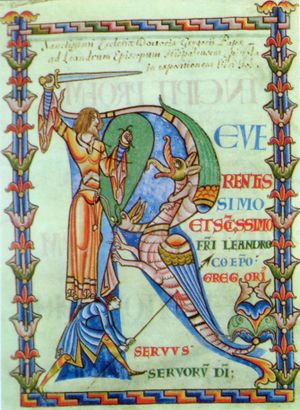 Sanctissimi Ecclesiæ Doctoris Gregorii Papæ
ad Leandrum Episcopum Hispalensem,
in expositionem
REVE
RENTIS
SIMO
ET SC̄ISSIMO
FR̄I LEANDRO
COEP̄O
GREGORI
SERVVS
SERVORV̄ DĪ;